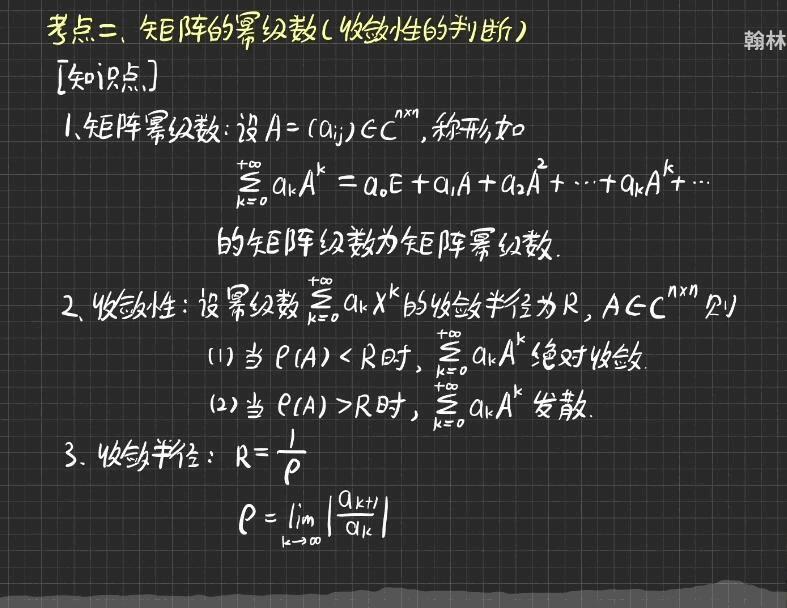 考点二、矩阵的幂级数(收敛性的判断)
翰林
[知识点]
1、矩阵幂级数:设 A=(aij)∈C^{n×n},称形如
\sum_{k=0}^{+∞} a_k A^k = a_0E + a_1A + a_2A^2 + ··· + a_kA^k + ···
的矩阵级数为矩阵幂级数.
2、收敛性:设幂级数 \sum_{k=0}^{+∞} a_k x^k 的收敛半径为R, A∈C^{n×n} 则
(1) 当 ρ(A) < R时, \sum_{k=0}^{+∞} a_k A^k 绝对收敛.
(2) 当 ρ(A) >R时, \sum_{k=0}^{+∞} a_k A^k 发散.
3、收敛半径: R=\frac{1}{ρ}
ρ = \lim_{k→∞} |\frac{a_{k+1}}{a_k}|